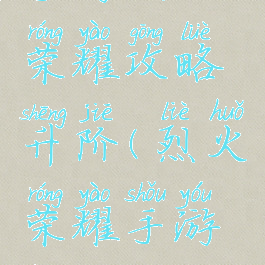 róng yào gōng lüè
荣耀攻略
shēng jiē liè huǒ
升阶(烈火
róng yào shǒu yóu
荣耀手游